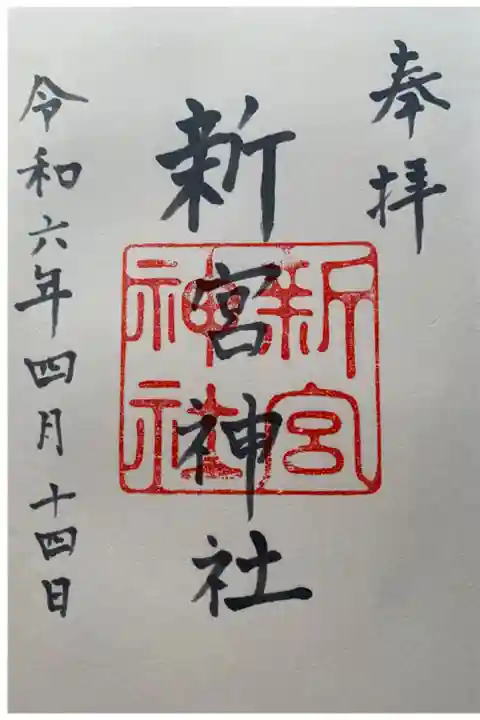 奉拝
新宮神社
新宮
神社
令和六年四月十四日